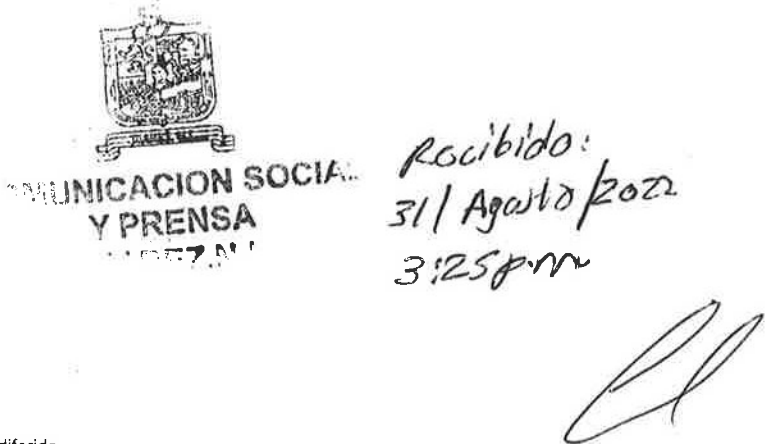 COMUNICACION SOCIAL
Y PRENSA
Recibido:
31/Agosto/2022
3:25 p.m